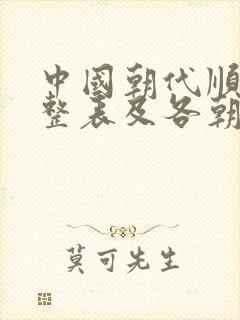 中國朝代順
整表及各朝
莫可先生